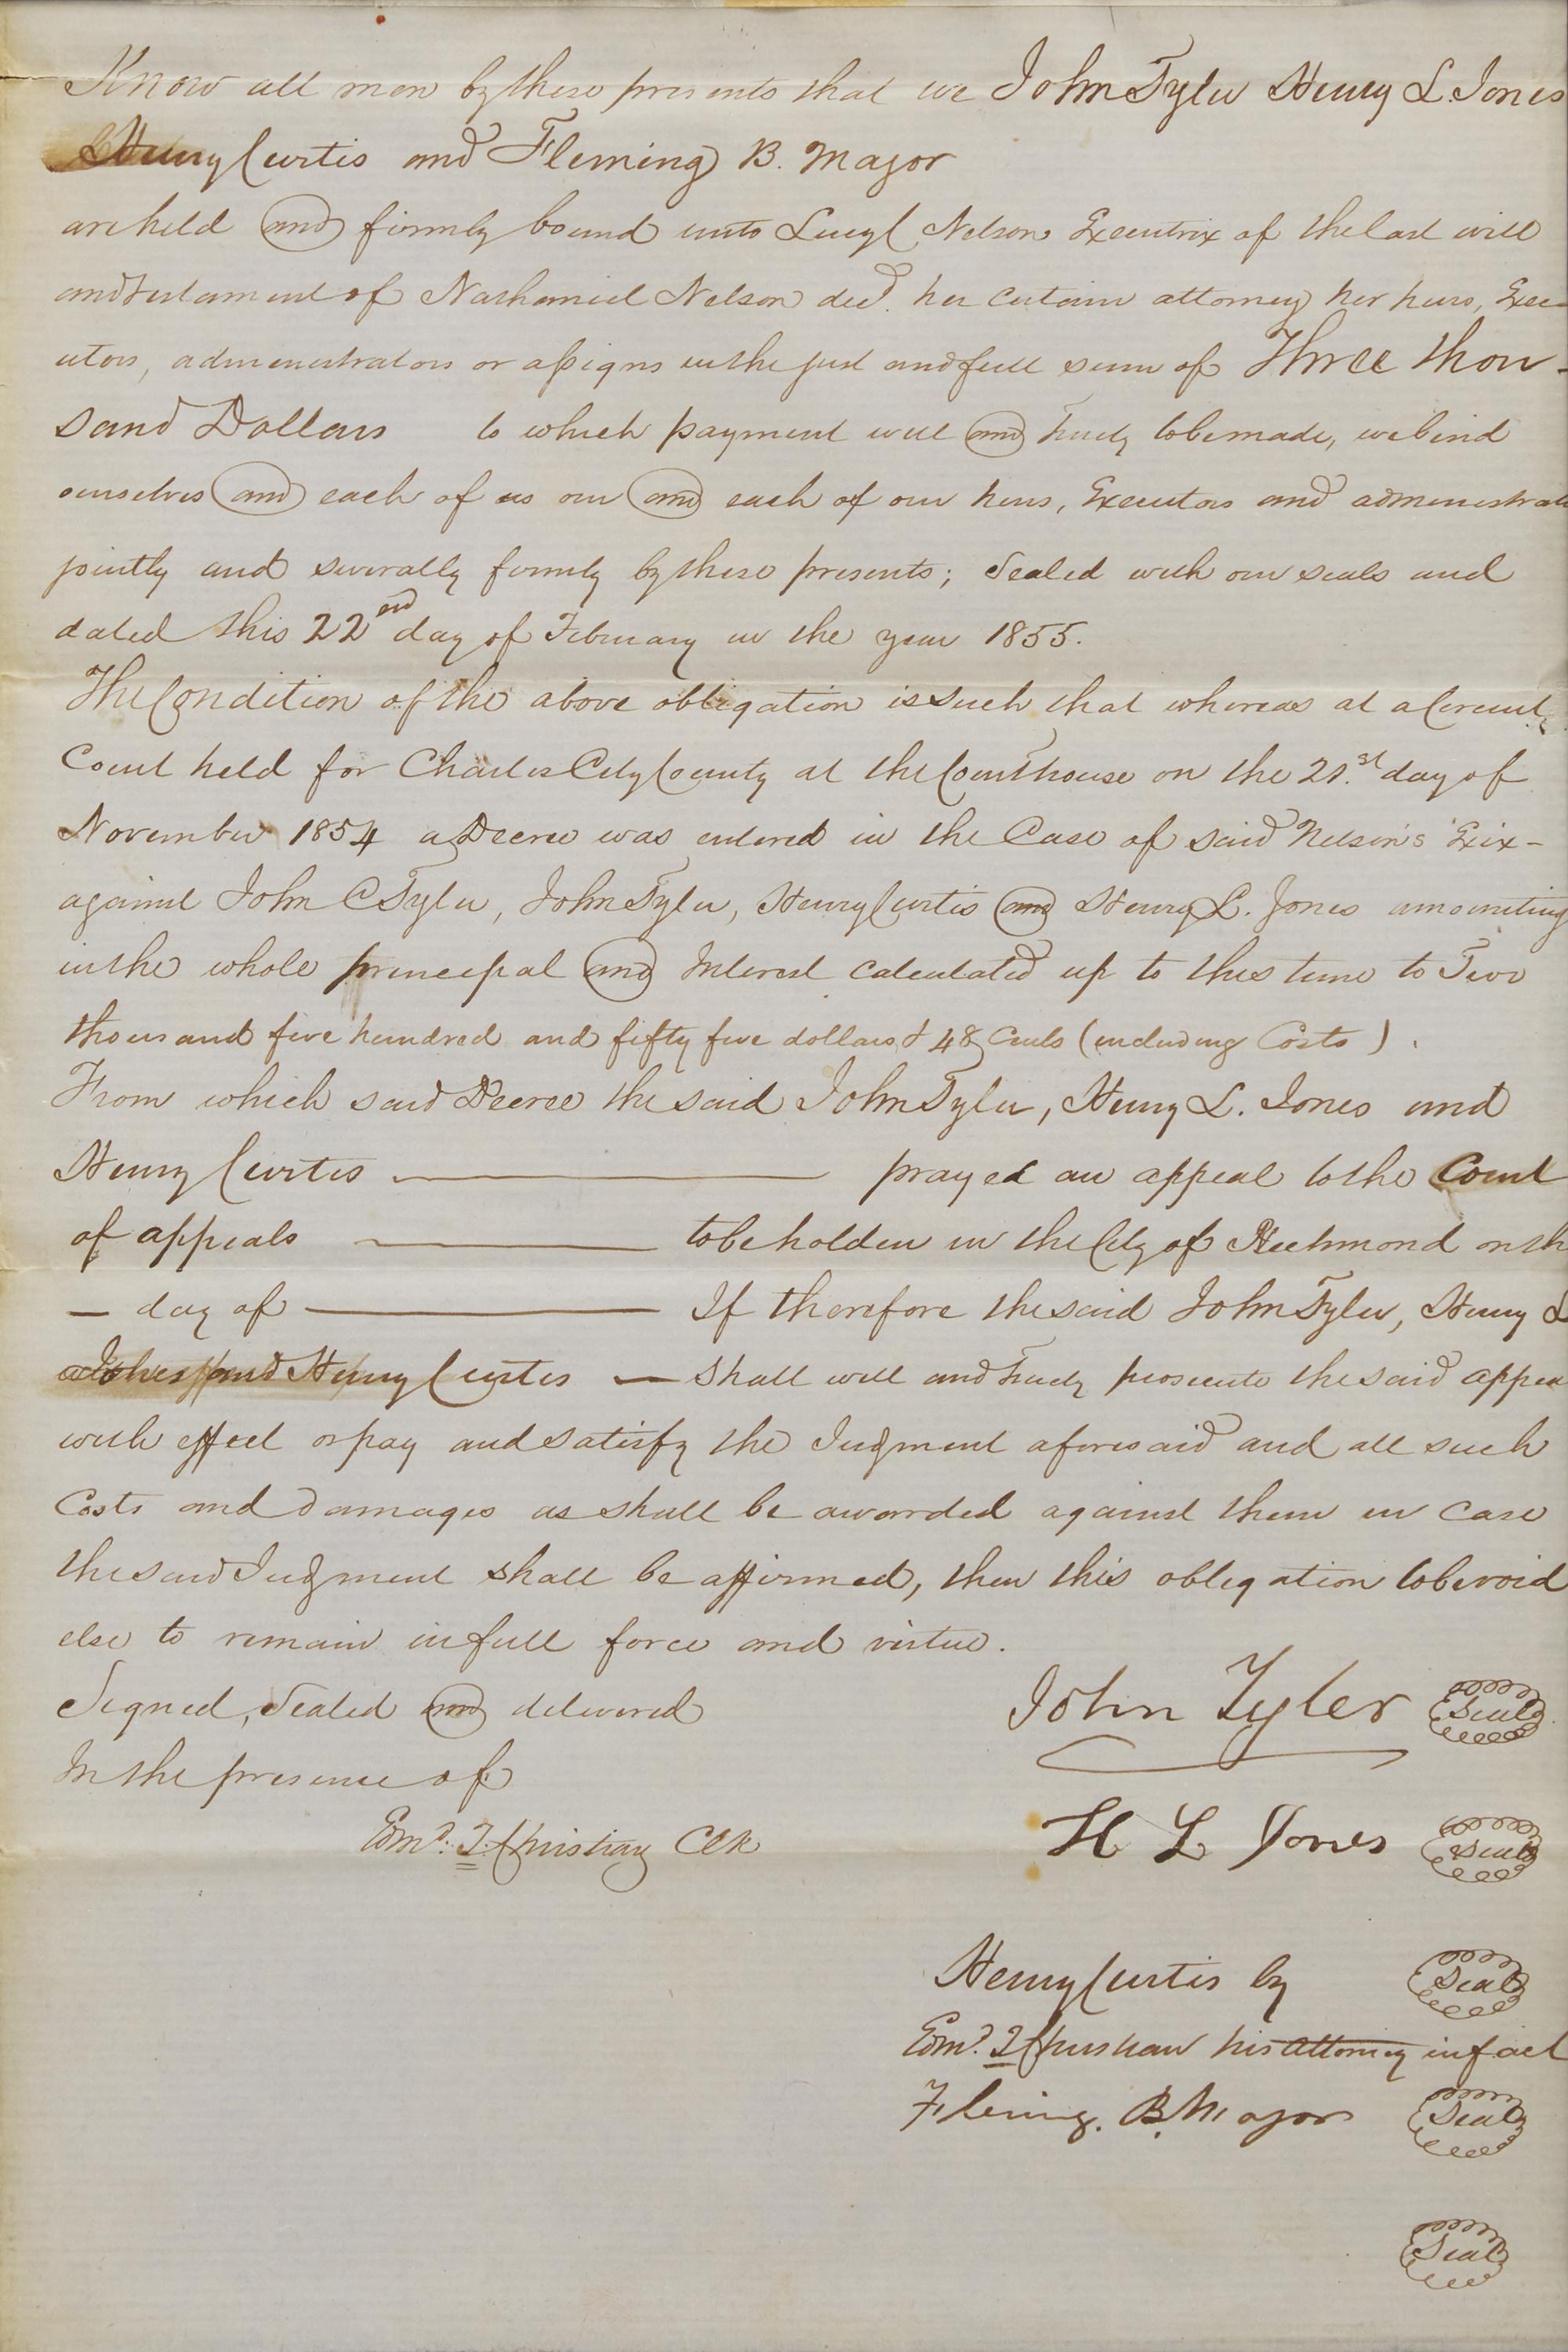 Know all men by these presents that we John Tyler Henry L. Jones
Henry Curtis and Fleming B. Major
are held and firmly bound unto Lucy C Nelson Executrix of the last will
and testament of Nathaniel Nelson decd. her certain attorney her heirs, Exec-
utors, administrators or assigns in the just and full sum of Three thou-
sand Dollars to which payment well and truly to be made, we bind
ourselves and each of us our and each of our heirs, Executors and administrat
jointly and severally firmly by these presents; Sealed with our seals and
dated this 22nd day of February in the year 1855.
The Condition of the above obligation is such that whereas at a Circuit
Court held for Charles City County at the Courthouse on the 21.st day of
November 1854 a Decree was entered in the Case of said Nelson's Exix-
against John C Tyler, John Tyler, Henry Curtis and Henry L. Jones amounting
in the whole principal and Interest calculated up to this time to Two
thousand five hundred and fifty five dollars & 48 Cents (including Costs).
From which said Decree the said John Tyler, Henry L. Jones and
Henry Curtis — prayed an appeal to the Court
of appeals — to be holden in the City of Richmond on th
— day of — If therefore the said John Tyler, Henry L
Jones and Henry Curtis — shall well and truly prosecute the said appea
with effect or pay and satisfy the Judgment aforesaid and all such
Costs and damages as shall be awarded against them in case
the said Judgment shall be affirmed, then this obligation to be void
else to remain in full force and virtue.
Signed, Sealed and delivered
In the presence of
Edmd. T. Christian Clk
John Tyler Seal
H L Jones Seal
Henry Curtis by Seal
Edmd. T Christian his attorney in fact
Fleming. B. Major Seal
Seal